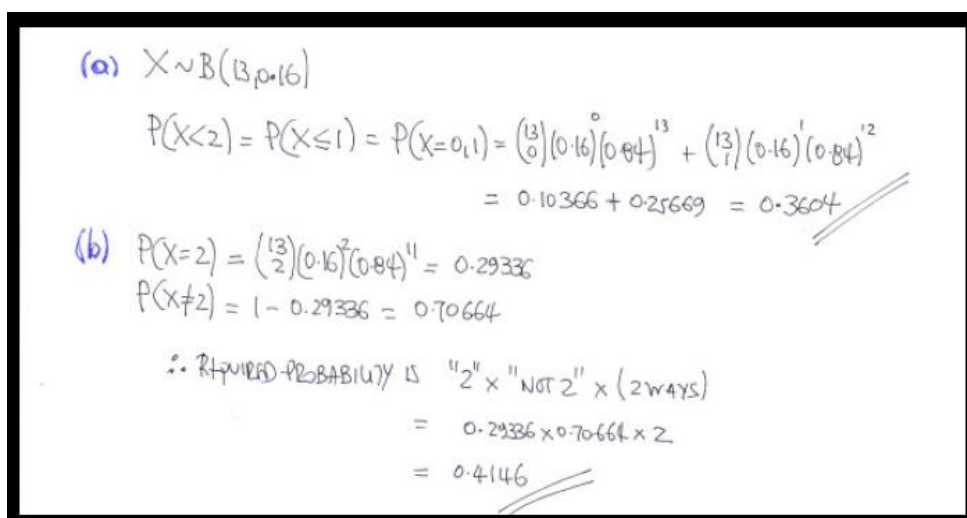 (a) X~B(13,0.16)
P(X<2) = P(X≤1) = P(X=0,1) = (13 0)(0.16)^0(0.84)^13 + (13 1)(0.16)^1(0.84)^12
= 0.10366 + 0.25669 = 0.3604
(b) P(X=2) = (13 2)(0.16)^2(0.84)^11 = 0.29336
P(X≠2) = 1 - 0.29336 = 0.70664
∴ REQUIRED PROBABILITY IS "2" x "NOT 2" x (2 WAYS)
= 0.29336 x 0.70664 x 2
= 0.4146